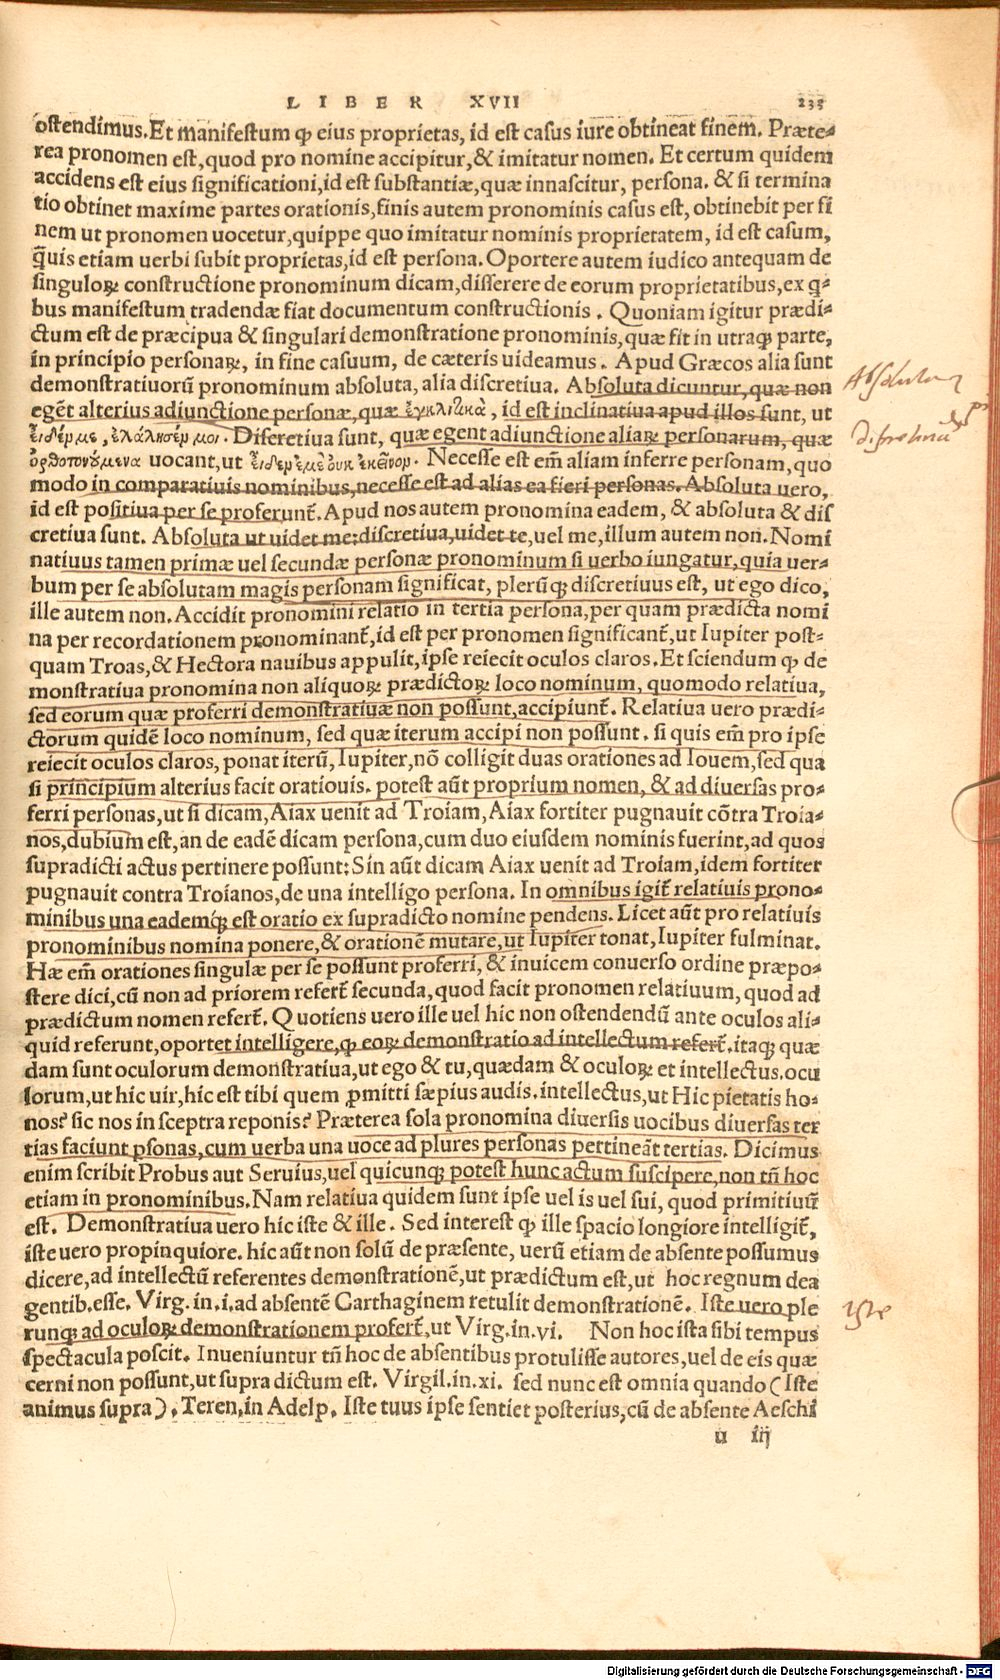 LIBER XVII 235
ostendimus. Et manifestum ꝙ eius proprietas, id est casus iure obtineat finem. Præte-
rea pronomen est, quod pro nomine accipitur, & imitatur nomen. Et certum quidem
accidens est eius significationi, id est substantiæ, quæ innascitur, persona. & si termina
tio obtinet maxime partes orationis, finis autem pronominis casus est, obtinebit per fi
nem ut pronomen uocetur, quippe quo imitatur nominis proprietatem, id est casum,
q̃uis etiam uerbi subit proprietas, id est persona. Oportere autem iudico antequam de
singuloꝝ constructione pronominum dicam, disserere de eorum proprietatibus, ex q̃-
bus manifestum tradendæ fiat documentum constructionis. Quoniam igitur prædi-
ctum est de præcipua & singulari demonstratione pronominis, quæ fit in utraqꝫ parte,
in principio personaꝝ, in fine casuum, de cæteris uideamus. Apud Græcos alia sunt
demonstratiuorũ pronominum absoluta, alia discretiua. Absoluta dicuntur, quæ non
Absoluta
egẽt alterius adiunctione personæ, quæ ἐγκλιτικὰ, id est inclinatiua apud illos sunt, ut
εἶδέρ με, ἐλάλησέρ μοι. Discretiua sunt, quæ egent adiunctione aliaꝝ personarum, quæ
ὀρθοτονούμενα uocant, ut εἶδερ ἐμὲ οὐκ ἐκεῖνορ. Necesse est em̃ aliam inferre personam, quo
modo in comparatiuis nominibus, necesse est ad alias ea fieri personas. Absoluta uero,
id est positiua per se proferunt̃. Apud nos autem pronomina eadem, & absoluta & dis
cretiua sunt. Absoluta ut uidet me: discretiua, uidet te, uel me, illum autem non. Nomi
natiuus tamen primæ uel secundæ personæ pronominum si uerbo iungatur, quia uer-
bum per se absolutam magis personam significat, plerũqꝫ discretiuus est, ut ego dico,
ille autem non. Accidit pronomini relatio in tertia persona, per quam prædicta nomi
na per recordationem pronominant̃, id est per pronomen significant̃, ut Iupiter post-
quam Troas, & Hectora nauibus appulit, ipse reiecit oculos claros. Et sciendum ꝙ de
monstratiua pronomina non aliquoꝝ prædictoꝝ loco nominum, quomodo relatiua,
sed eorum quæ proferri demonstratiuæ non possunt, accipiunt̃. Relatiua uero prædi-
ctorum quidẽ loco nominum, sed quæ iterum accipi non possunt. si quis em̃ pro ipse
reiecit oculos claros, ponat iterũ, Iupiter, nõ colligit duas orationes ad Iouem, sed qua
si principium alterius facit oratiouis. potest aũt proprium nomen, & ad diuersas pro-
ferri personas, ut si dicam, Aiax uenit ad Troiam, Aiax fortiter pugnauit cõtra Troia-
nos, dubium est, an de eadẽ dicam persona, cum duo eiusdem nominis fuerint, ad quos
supradicti actus pertinere possunt: Sin aũt dicam Aiax uenit ad Troiam, idem fortiter
pugnauit contra Troianos, de una intelligo persona. In omnibus igit̃ relatiuis prono-
minibus una eademqꝫ est oratio ex supradicto nomine pendens. Licet aũt pro relatiuis
pronominibus nomina ponere, & orationẽ mutare, ut Iupiter tonat, Iupiter fulminat.
Hæ em̃ orationes singulæ per se possunt proferri, & inuicem conuerso ordine præpo-
stere dici, cũ non ad priorem refert̃ secunda, quod facit pronomen relatiuum, quod ad
prædictum nomen refert̃. Quotiens uero ille uel hic non ostendendũ ante oculos ali-
quid referunt, oportet intelligere, ꝙ eoꝝ demonstratio ad intellectum refert̃. itaqꝫ quæ
dam sunt oculorum demonstratiua, ut ego & tu, quædam & oculoꝝ et intellectus. ocu
lorum, ut hic uir, hic est tibi quem ꝓmitti sæpius audis. intellectus, ut Hic pietatis ho-
nos? sic nos in sceptra reponis? Præterea sola pronomina diuersis uocibus diuersas ter
tias faciunt ꝑsonas, cum uerba una uoce ad plures personas pertineãt tertias. Dicimus
enim scribit Probus aut Seruius, uel quicunqꝫ potest hunc actum suscipere, non tñ hoc
etiam in pronominibus. Nam relatiua quidem sunt ipse uel is uel sui, quod primitiuũ
est. Demonstratiua uero hic iste & ille. Sed interest ꝙ ille spacio longiore intelligit̃,
iste uero propinquiore. hic aũt non solũ de præsente, uerũ etiam de absente possumus
dicere, ad intellectũ referentes demonstrationẽ, ut prædictum est, ut hoc regnum dea
gentib. esse. Virg. in. i. ad absentẽ Carthaginem retulit demonstrationẽ. Iste uero ple
iste
runqꝫ ad oculoꝝ demonstrationem profert̃, ut Virg. in. vi. Non hoc ista sibi tempus
spectacula poscit. Inueniuntur tñ hoc de absentibus protulisse autores, uel de eis quæ
cerni non possunt, ut supra dictum est. Virgil. in. xi. sed nunc est omnia quando (Iste
animus supra). Teren, in Adelp. Iste tuus ipse sentiet posterius, cũ de absente Aeschi
u iij
Digitalisierung gefördert durch die Deutsche Forschungsgemeinschaft - DFG